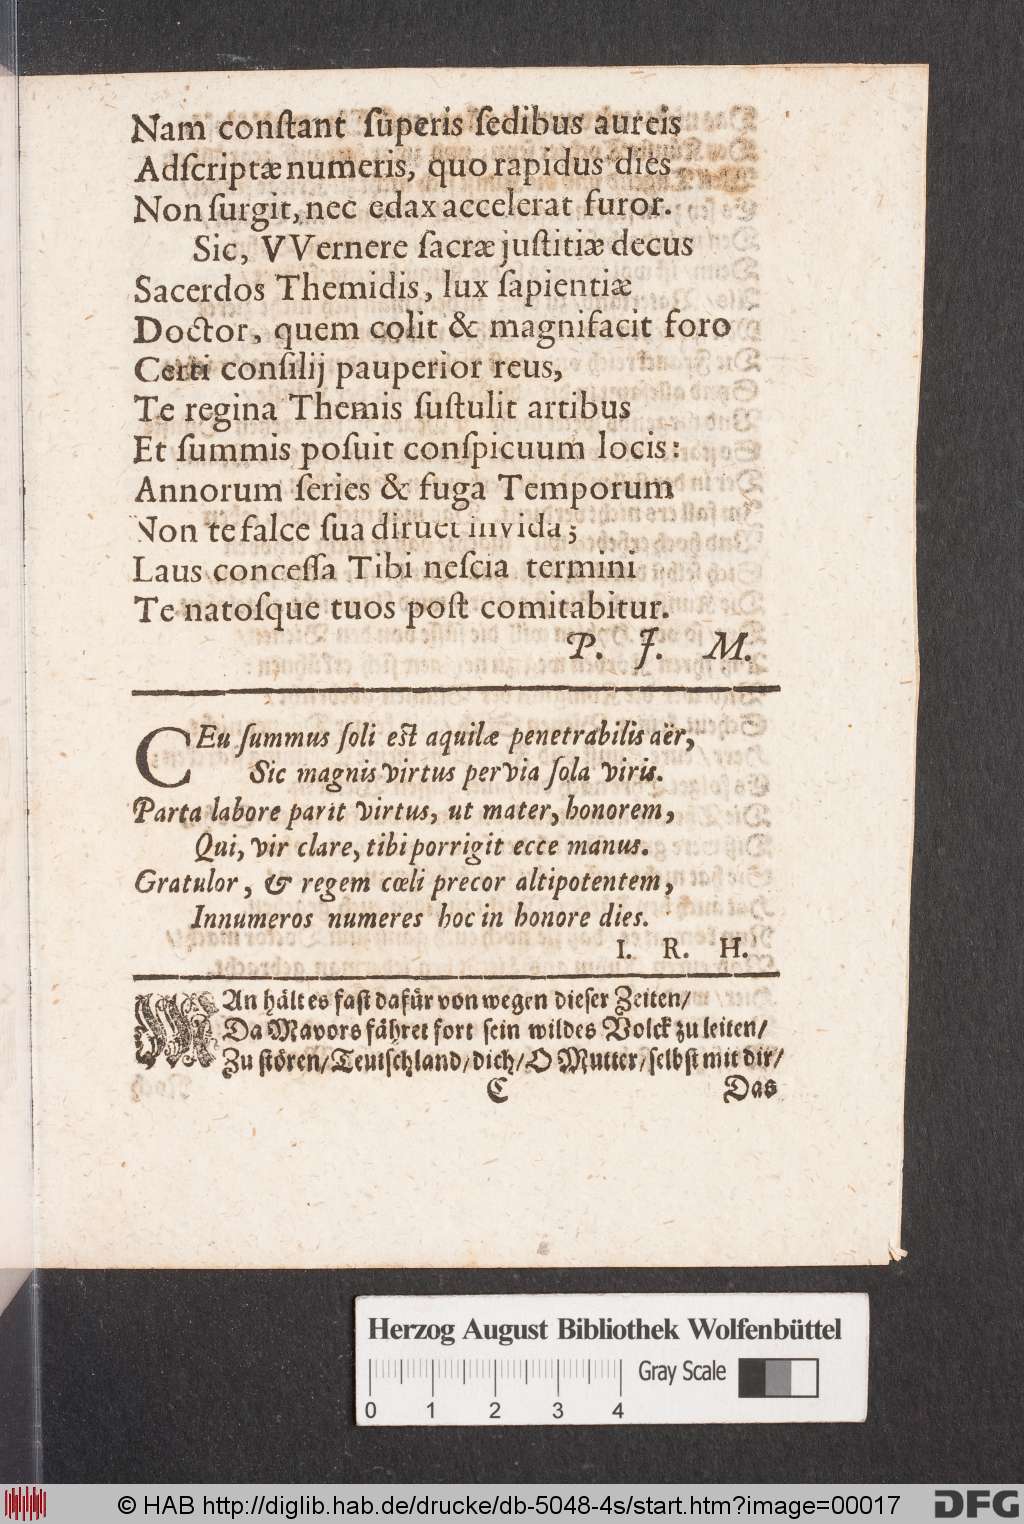 Nam conſtant ſuperis ſedibus aureis
Adſcriptæ numeris, quo rapidus dies
Non ſurgit, nec edax accelerat furor.
Sic, VVernere ſacræ juſtitiæ decus
Sacerdos Themidis, lux ſapientiæ
Doctor, quem colit & magnifacit foro
Certi conſilij pauperior reus,
Te regina Themis ſuſtulit artibus
Et ſummis poſuit conſpicuum locis:
Annorum ſeries & fuga Temporum
Non te falce ſua diruet invida;
Laus conceſſa Tibi neſcia termini
Te natoſque tuos poſt comitabitur.
P. J. M.
CEu ſummus ſoli eſt aquilæ penetrabilis aër,
Sic magnis virtus pervia ſola viris.
Parta labore parit virtus, ut mater, honorem,
Qui, vir clare, tibi porrigit ecce manus.
Gratulor, & regem cœli precor altipotentem,
Innumeros numeres hoc in honore dies.
I. R. H.
MAn hält es faſt dafür von wegen dieſer Zeiten/
Da Mavors fähret fort ſein wildes Volck zu leiten/
Zu ſtören/Teutſchland/dich/O Mutter/ſelbſt mit dir/
C
Das
Herzog August Bibliothek Wolfenbüttel
Gray Scale
0 1 2 3 4
© HAB http://diglib.hab.de/drucke/db-5048-4s/start.htm?image=00017
DFG